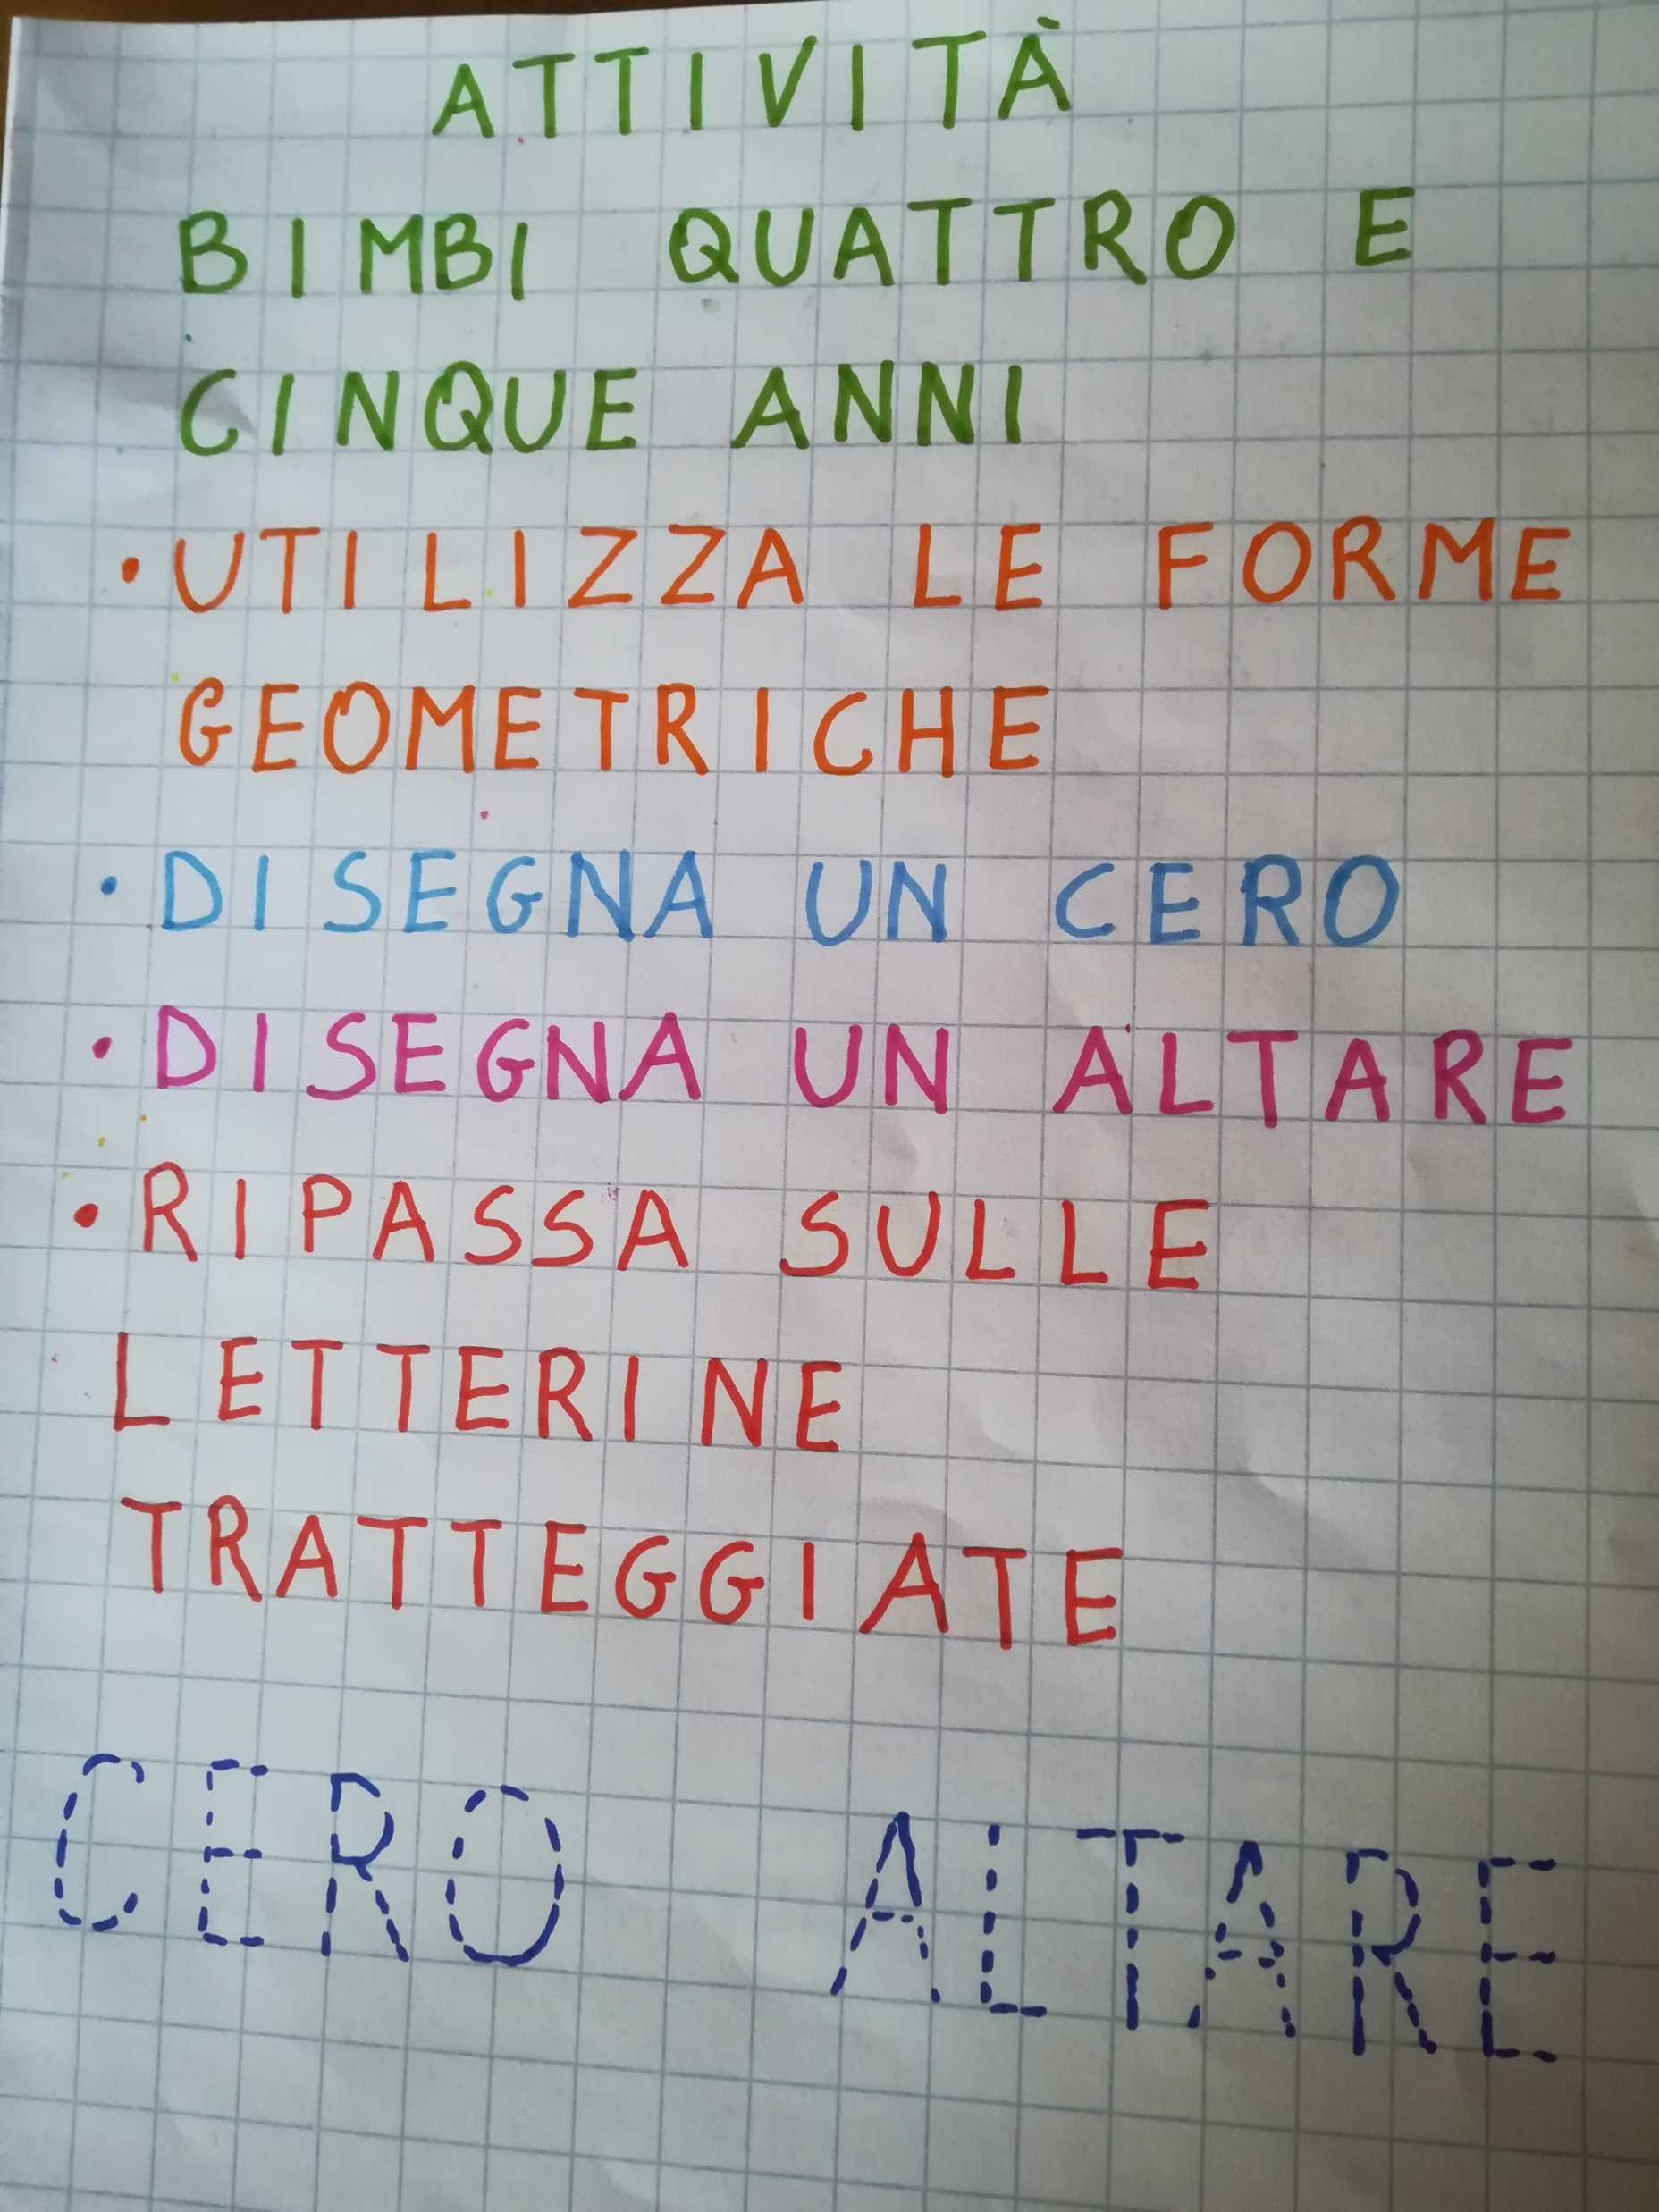 ATTIVITÀ
BIMBI QUATTRO E
CINQUE ANNI
• UTILIZZA LE FORME
GEOMETRICHE
• DISEGNA UN CERO
• DISEGNA UN ALTARE
• RIPASSA SULLE
LETTERINE
TRATTEGGIATE
CERO ALTARE